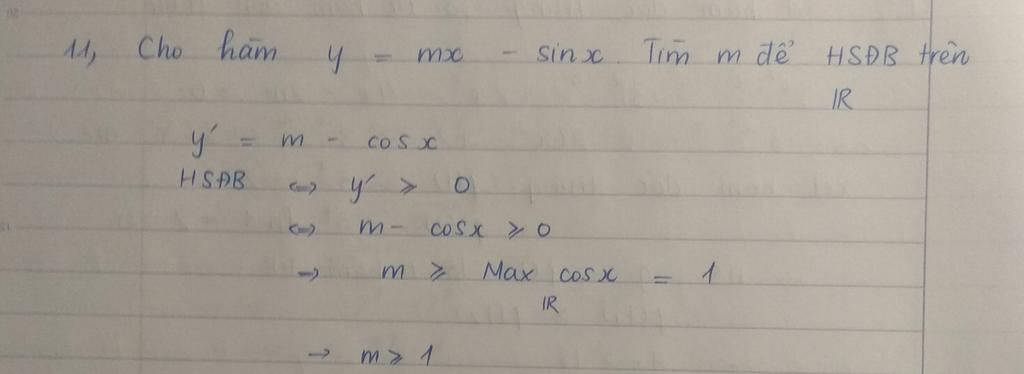 11, Cho hàm y = mx - sinx. Tìm m để HSĐB trên
IR
y' = m - cosx
HSĐB <=> y' ≥ 0
<=> m - cosx ≥ 0
→ m ≥ Max cosx = 1
IR
→ m ≥ 1